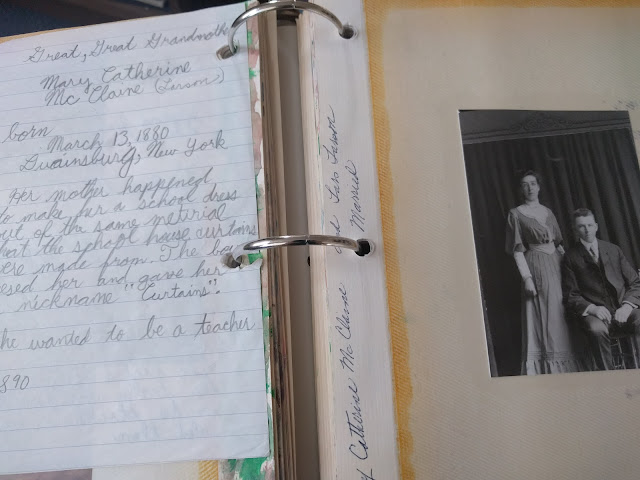 Great, Great Grandmoth
Mary Catherine
Mc Claine (Larson)
born
March 13, 1880
Duainsburg, New York
Her mother happened
to make her a school dress
out of the same meterial
that the school house curtains
were made from. The bo
esed her and gave her
nickname "Curtains".
he wanted to be a teacher
890
y Catherine Mc Claine
and Lars Larson
Married